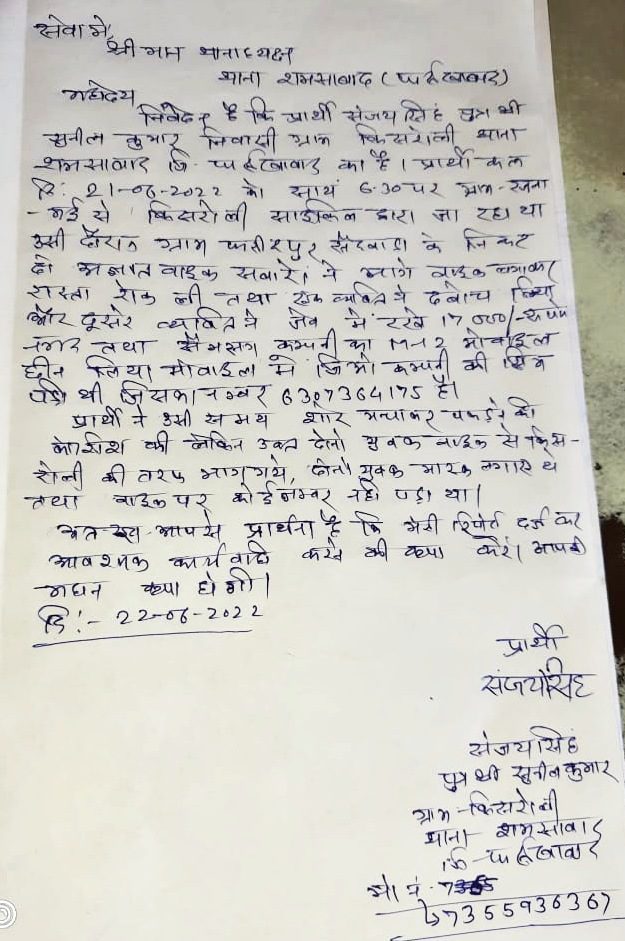 सेवा में,
श्री मान थानाध्यक्ष
थाना शमसाबाद (फर्रुखाबाद)
महोदय
निवेदन है कि प्रार्थी संजय सिंह पुत्र श्री
सुनील कुमार निवासी ग्राम किसरोली थाना
शमसाबाद जि. फर्रुखाबाद का है। प्रार्थी कल
दि: 21-06-2022 को सायं 6:30 पर ग्राम-
से किसरोली साइकिल द्वारा जा रहा था
उसी दौरान ग्राम के निकट
दो अज्ञात बाइक सवारों ने आगे बाइक लगाकर
रास्ता रोक ली तथा एक व्यक्ति ने दबोच लिया
और दूसरे व्यक्ति ने जेब में रखे 17000/- रुपये
नगद तथा सैमसंग कम्पनी का M-12 मोबाइल
छीन लिया मोबाइल में जिओ कम्पनी की सिम
पड़ी थी जिसका नम्बर 6307364175 है।
प्रार्थी ने उसी समय शोर मचाकर पकड़ने की
कोशीश की लेकिन उक्त दोनो युवक बाइक से किस-
रोली की तरफ भाग गये, दोनो युवक मास्क लगाए थे
तथा बाइक पर कोई नम्बर नहीं पड़ा था।
अतः आपसे प्रार्थना है कि मेरी रिपोर्ट दर्ज कर
आवश्यक कार्यवाही करने की कृपा करें। आपकी
महान कृपा होगी।
दि:- 22-06-2022
प्रार्थी
संजयसिंह
संजयसिंह
पुत्र श्री सुनील कुमार
ग्राम-किसरोली
थाना शमसाबाद
जि-फर्रुखाबाद
मो नं.
7355936367